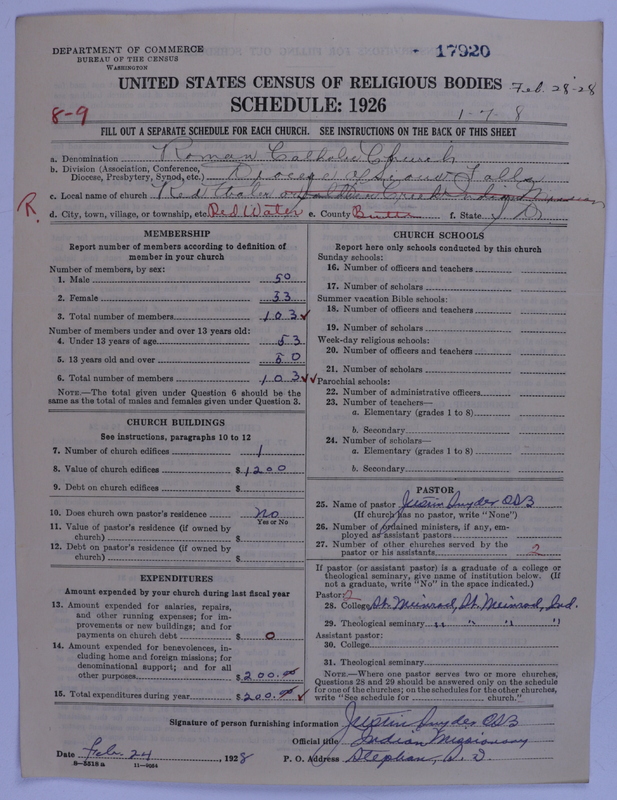 DEPARTMENT OF COMMERCE
BUREAU OF THE CENSUS
WASHINGTON
17920
UNITED STATES CENSUS OF RELIGIOUS BODIES
Feb. 28-28
8-9
SCHEDULE: 1926
1-7-8
FILL OUT A SEPARATE SCHEDULE FOR EACH CHURCH. SEE INSTRUCTIONS ON THE BACK OF THIS SHEET
a. Denomination Roman Catholic Church
b. Division (Association, Conference, Diocese, Presbytery, Synod, etc.) Diocese of Sioux Falls
c. Local name of church Red Water or Creek Indian
R.
d. City, town, village, or township, etc. Red Water e. County Butte f. State S. D.
MEMBERSHIP
Report number of members according to definition of member in your church
Number of members, by sex:
1. Male 50
2. Female 33
3. Total number of members 103
Number of members under and over 13 years old:
4. Under 13 years of age 53
5. 13 years old and over 50
6. Total number of members 103
NOTE.—The total given under Question 6 should be the same as the total of males and females given under Question 3.
CHURCH BUILDINGS
See instructions, paragraphs 10 to 12
7. Number of church edifices 1
8. Value of church edifices $1200
9. Debt on church edifices $
10. Does church own pastor's residence No
Yes or No
11. Value of pastor's residence (if owned by church) $
12. Debt on pastor's residence (if owned by church) $
EXPENDITURES
Amount expended by your church during last fiscal year
13. Amount expended for salaries, repairs, and other running expenses; for improvements or new buildings; and for payments on church debt $ 0
14. Amount expended for benevolences, including home and foreign missions; for denominational support; and for all other purposes $200.00
15. Total expenditures during year $200.00
CHURCH SCHOOLS
Report here only schools conducted by this church
Sunday schools:
16. Number of officers and teachers
17. Number of scholars
Summer vacation Bible schools:
18. Number of officers and teachers
19. Number of scholars
Week-day religious schools:
20. Number of officers and teachers
21. Number of scholars
Parochial schools:
22. Number of administrative officers
23. Number of teachers—
a. Elementary (grades 1 to 8)
b. Secondary
24. Number of scholars—
a. Elementary (grades 1 to 8)
b. Secondary
PASTOR
25. Name of pastor Justin Snyder OSB
(If church has no pastor, write "None")
26. Number of ordained ministers, if any, employed as assistant pastors
27. Number of other churches served by the pastor or his assistants 2
If pastor (or assistant pastor) is a graduate of a college or theological seminary, give name of institution below. (If not a graduate, write "No" in the space indicated.)
Pastor: 2
28. College St. Meinrad, St. Meinrad, Ind.
29. Theological seminary " " "
Assistant pastor:
30. College
31. Theological seminary
NOTE.—Where one pastor serves two or more churches, Questions 28 and 29 should be answered only on the schedule for one of the churches; on the schedules for the other churches, write "See schedule for church."
Signature of person furnishing information Justin Snyder OSB
Official title Indian Missionary
Date Feb. 24, 1928 P. O. Address Stephan, S. D.
8-3518 a 11-9604